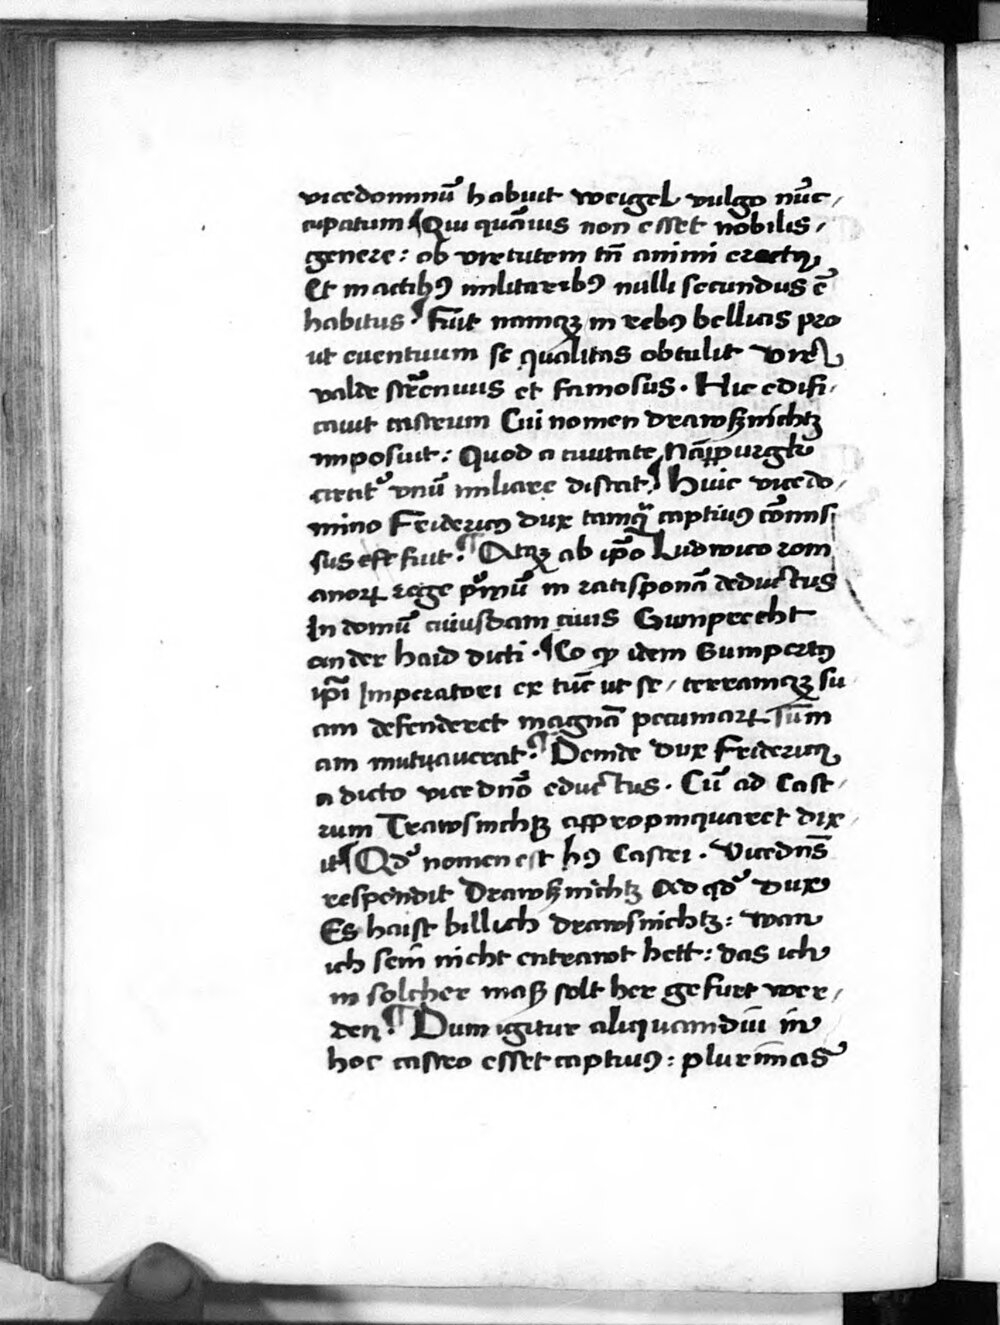 vicedominū habuit weigel vulgo nūc,
cupatum ¶ Qui quāuis non esset nobilis,
genere: ob virtutem tn̄ animi erectꝰ,
Et in actibꝰ militaribꝰ nulli secundus ē
habitus. ¶ Fuit namqꝫ in rebꝰ bellicis pro
ut euentuum se qualitas obtulit vir
valde strēnuus et famosus. Hic edifi,
cauit castrum Cui nomen drawßnichtz
imposuit: Quod a ciuitate Nāppurgk
circit͛ vnū miliare distat. ¶ Huic vicedo,
mino Fridericꝰ dux tamqᷓ captiuꝰ cōmis
sus est fuit. ¶ Atqꝫ ab ip̄o Ludwico rom
anorꝝ rege p͛mū in ratisponā deductus
In domū cuiusdam ciuis Gumprecht
an der haid dicti. ¶ Eo ꝙ idem Gumpertꝰ
ip̄i Imperatori ex tūc ut se, terramqꝫ su
am defenderet magnā pecuniarꝝ sūm
am mutuauerat. ¶ Deinde dux Fridericꝰ
a dicto vicedn̄o eductus. Cū ad Cast,
rum Trawsnichß appropinquaret dix,
it ¶ Qd͛ nomen est hꝰ Castri. Vicedn̄s
respondit Drawßnichtz Ad qd͛ Dux
Es haist billich drawsnichtz: wan
ich sein nicht entrawt hett: das ich
in solcher maß solt her gefurt wer,
den. ¶ Dum igitur aliquamdiu in
hoc castro esset captiuꝰ: plurimas